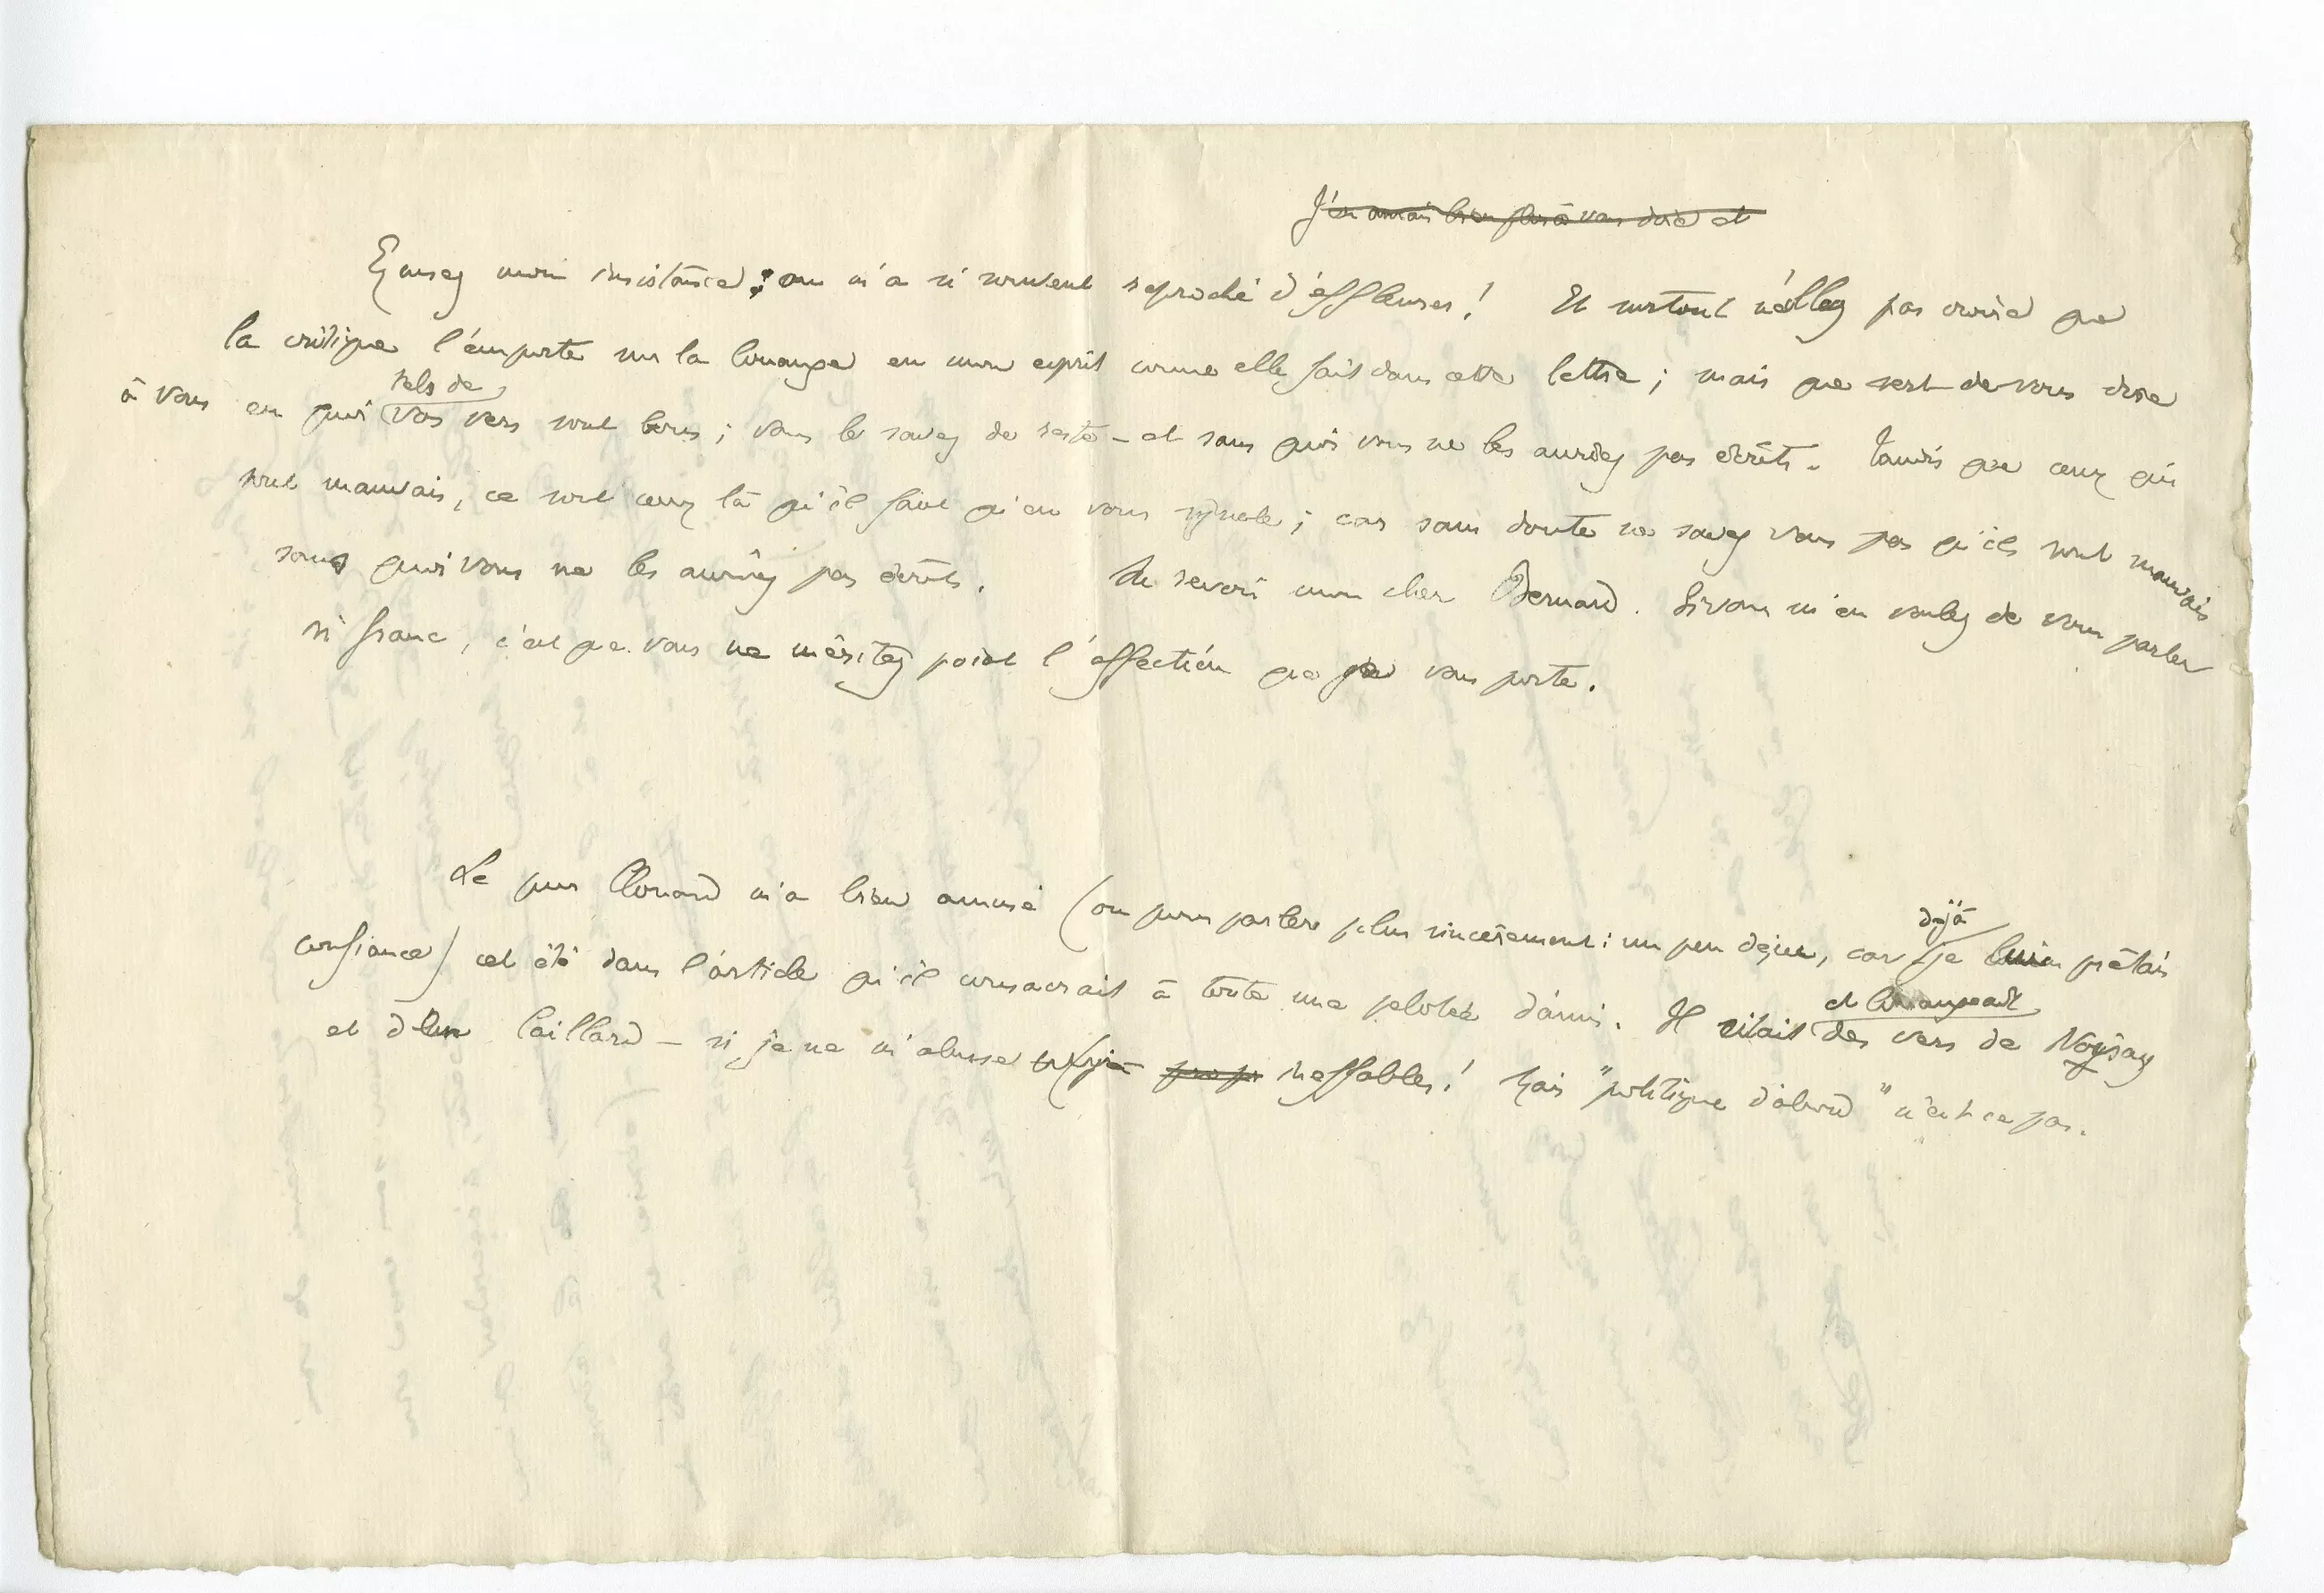 J'en aurais bien plus à vous dire et
Excusez mon insistance; on m'a si souvent reproché d'effleurer! Et surtout n'allez pas croire que
la critique l'emporte sur la louange en mon esprit comme elle fait dans cette lettre; mais que sert de vous dire
à vous en quoi tels de vos vers sont bons; vous le savez de reste – et sans quoi vous ne les auriez pas écrits. Tandis que ceux qui
sont mauvais, ce sont ceux là qu'il faut qu'on vous signale; car sans doute ne savez vous pas qu'ils sont mauvais
sans quoi vous ne les auriez pas écrits. Au revoir mon cher Bernard. Si vous m'en voulez de vous parler
si franc, c'est que vous ne méritez point l'affection que je vous porte.
Le pur Clouard m'a bien amusé (ou pour parler plus sincèrement: un peu déçu, car déjà je lui prêtais
confiance) cet été dans l'article qu'il consacrait à toute une pelotée d'amis. Il citait et louangeait des vers de Noisay
et d'un Caillard – si je ne m'abuse ineffables! Mais "politique d'abord" n'est ce pas.